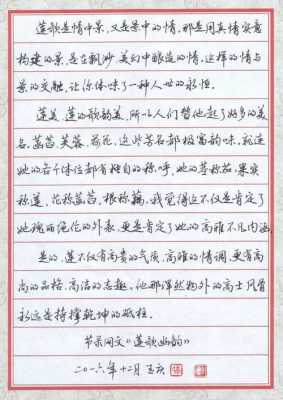 莲歌是情中景，又是景中的情，那是用真情实意
构建的景，是在飘渺、美幻中酿造的情，这样的情与
景的交融，让你体味了一种人世的永恒。
莲美，莲的歌韵美，所以人们替他起了好多的美
名，菡萏、芙蓉、荷花，这些芳名都极富韵味，就连
她的各个体位都有独自的称呼，她的茎称茄，果实
称莲，花称菡萏，根称藕，我觉得这不仅是肯定了
她瑰丽绝伦的外表，更是肯定了她的高雅不凡内涵
是的，莲不仅有高贵的气质、高雅的情调，更有高
尚的品格、高洁的志趣。他那浑然物外的高士风骨
永远是持撑乾坤的砥柱。
节录网文《莲歌幽韵》
二〇一六年十二月